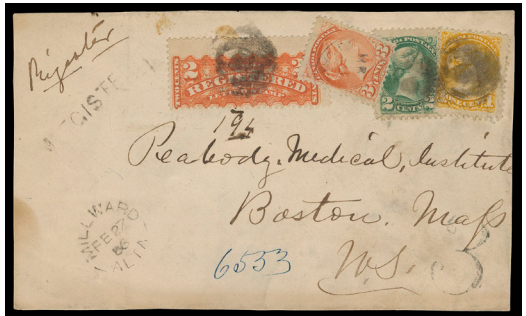 Register
REGISTERED
2 REGISTERED 2
3 CENTS 3
2 CENTS 2
194
Peabody. Medical, Institute
Boston. Mass
U.S.
MILLWARD
FE 27
86
ALTA
6553
3